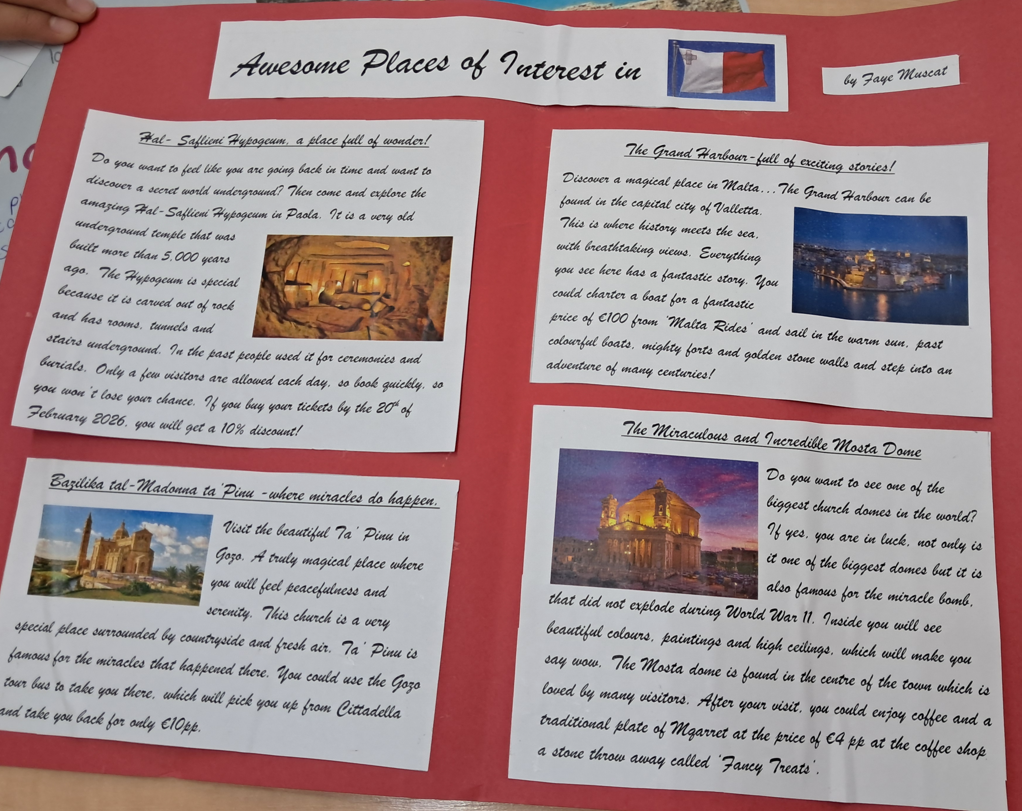 Awesome Places of Interest in
by Faye Muscat
Hal- Saflieni Hypogeum, a place full of wonder!
Do you want to feel like you are going back in time and want to
discover a secret world underground? Then come and explore the
amazing Hal-Saflieni Hypogeum in Paola. It is a very old
underground temple that was
built more than 5,000 years
ago. The Hypogeum is special
because it is carved out of rock
and has rooms, tunnels and
stairs underground. In the past people used it for ceremonies and
burials. Only a few visitors are allowed each day, so book quickly, so
you won't lose your chance. If you buy your tickets by the 20th of
February 2026, you will get a 10% discount!
The Grand Harbour-full of exciting stories!
Discover a magical place in Malta...The Grand Harbour can be
found in the capital city of Valletta.
This is where history meets the sea,
with breathtaking views. Everything
you see here has a fantastic story. You
could charter a boat for a fantastic
price of €100 from 'Malta Rides' and sail in the warm sun, past
colourful boats, mighty forts and golden stone walls and step into an
adventure of many centuries!
Bazilika tal-Madonna ta'Pinu -where miracles do happen.
Visit the beautiful Ta' Pinu in
Gozo. A truly magical place where
you will feel peacefulness and
serenity. This church is a very
special place surrounded by countryside and fresh air. Ta' Pinu is
famous for the miracles that happened there. You could use the Gozo
tour bus to take you there, which will pick you up from Cittadella
and take you back for only €10pp.
The Miraculous and Incredible Mosta Dome
Do you want to see one of the
biggest church domes in the world?
If yes, you are in luck, not only is
it one of the biggest domes but it is
also famous for the miracle bomb,
that did not explode during World War 11. Inside you will see
beautiful colours, paintings and high ceilings, which will make you
say wow. The Mosta dome is found in the centre of the town which is
loved by many visitors. After your visit, you could enjoy coffee and a
traditional plate of Mqarret at the price of €4 pp at the coffee shop
a stone throw away called 'Fancy Treats'.